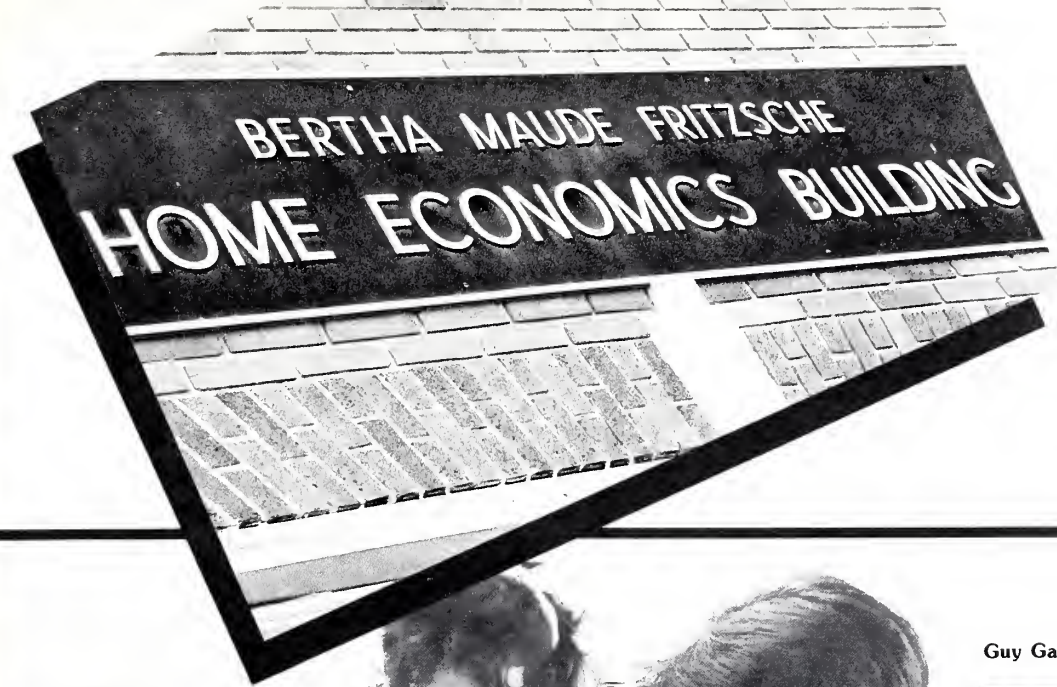 BERTHA MAUDE FRITZSCHE
HOME ECONOMICS BUILDING
Guy